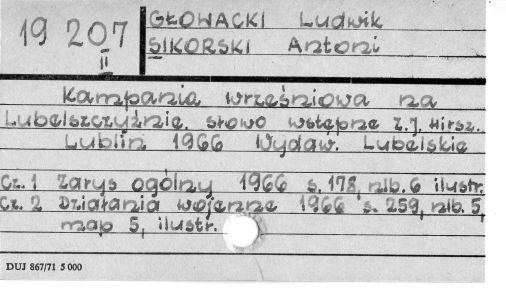 19 207
II
GŁOWACKI Ludwik
SIKORSKI Antoni
Kampania wrześniowa na
Lubelszczyźnie. słowo wstępne Z.J. Hirsz.
Lublin 1966 Wydaw. Lubelskie
Cz. 1 Zarys ogólny 1966 s. 178, nlb. 6 ilustr.
Cz. 2 Działania wojenne 1966 s. 259, nlb. 5,
map 5, ilustr.
DUJ 867/71 5 000